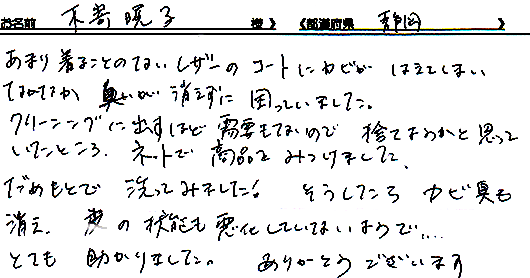 お名前 木嵜暁子 様 》《都道府県 静岡 》
あまり着ることのないレザーのコートにカビがはえてしまい
なかなか臭いが消えずに困っていました。
クリーニングに出すほど需要もないので捨てようかと思って
いたところ、ネットで商品をみつけました。
だめもとで洗ってみました! そうしたところカビ臭も
消え、皮の状態も悪化していないようで....
とても助かりました。 ありがとうございます